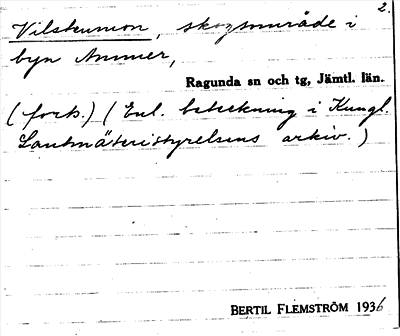 2.
Vilstrumon, skogsområde i
byn Ammer,
Ragunda sn och tg, Jämtl. län.
(forts.) (Enl. beteckning i Kungl.
Lantmäteristyrelsens arkiv.)
BERTIL FLEMSTRÖM 1936